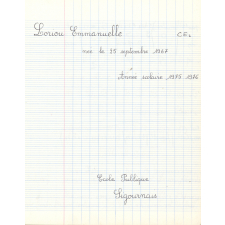 Loriou Emmanuelle CE2
née le 25 septembre 1967
Année scolaire 1975 1976
Ecole Publique
Sigournais